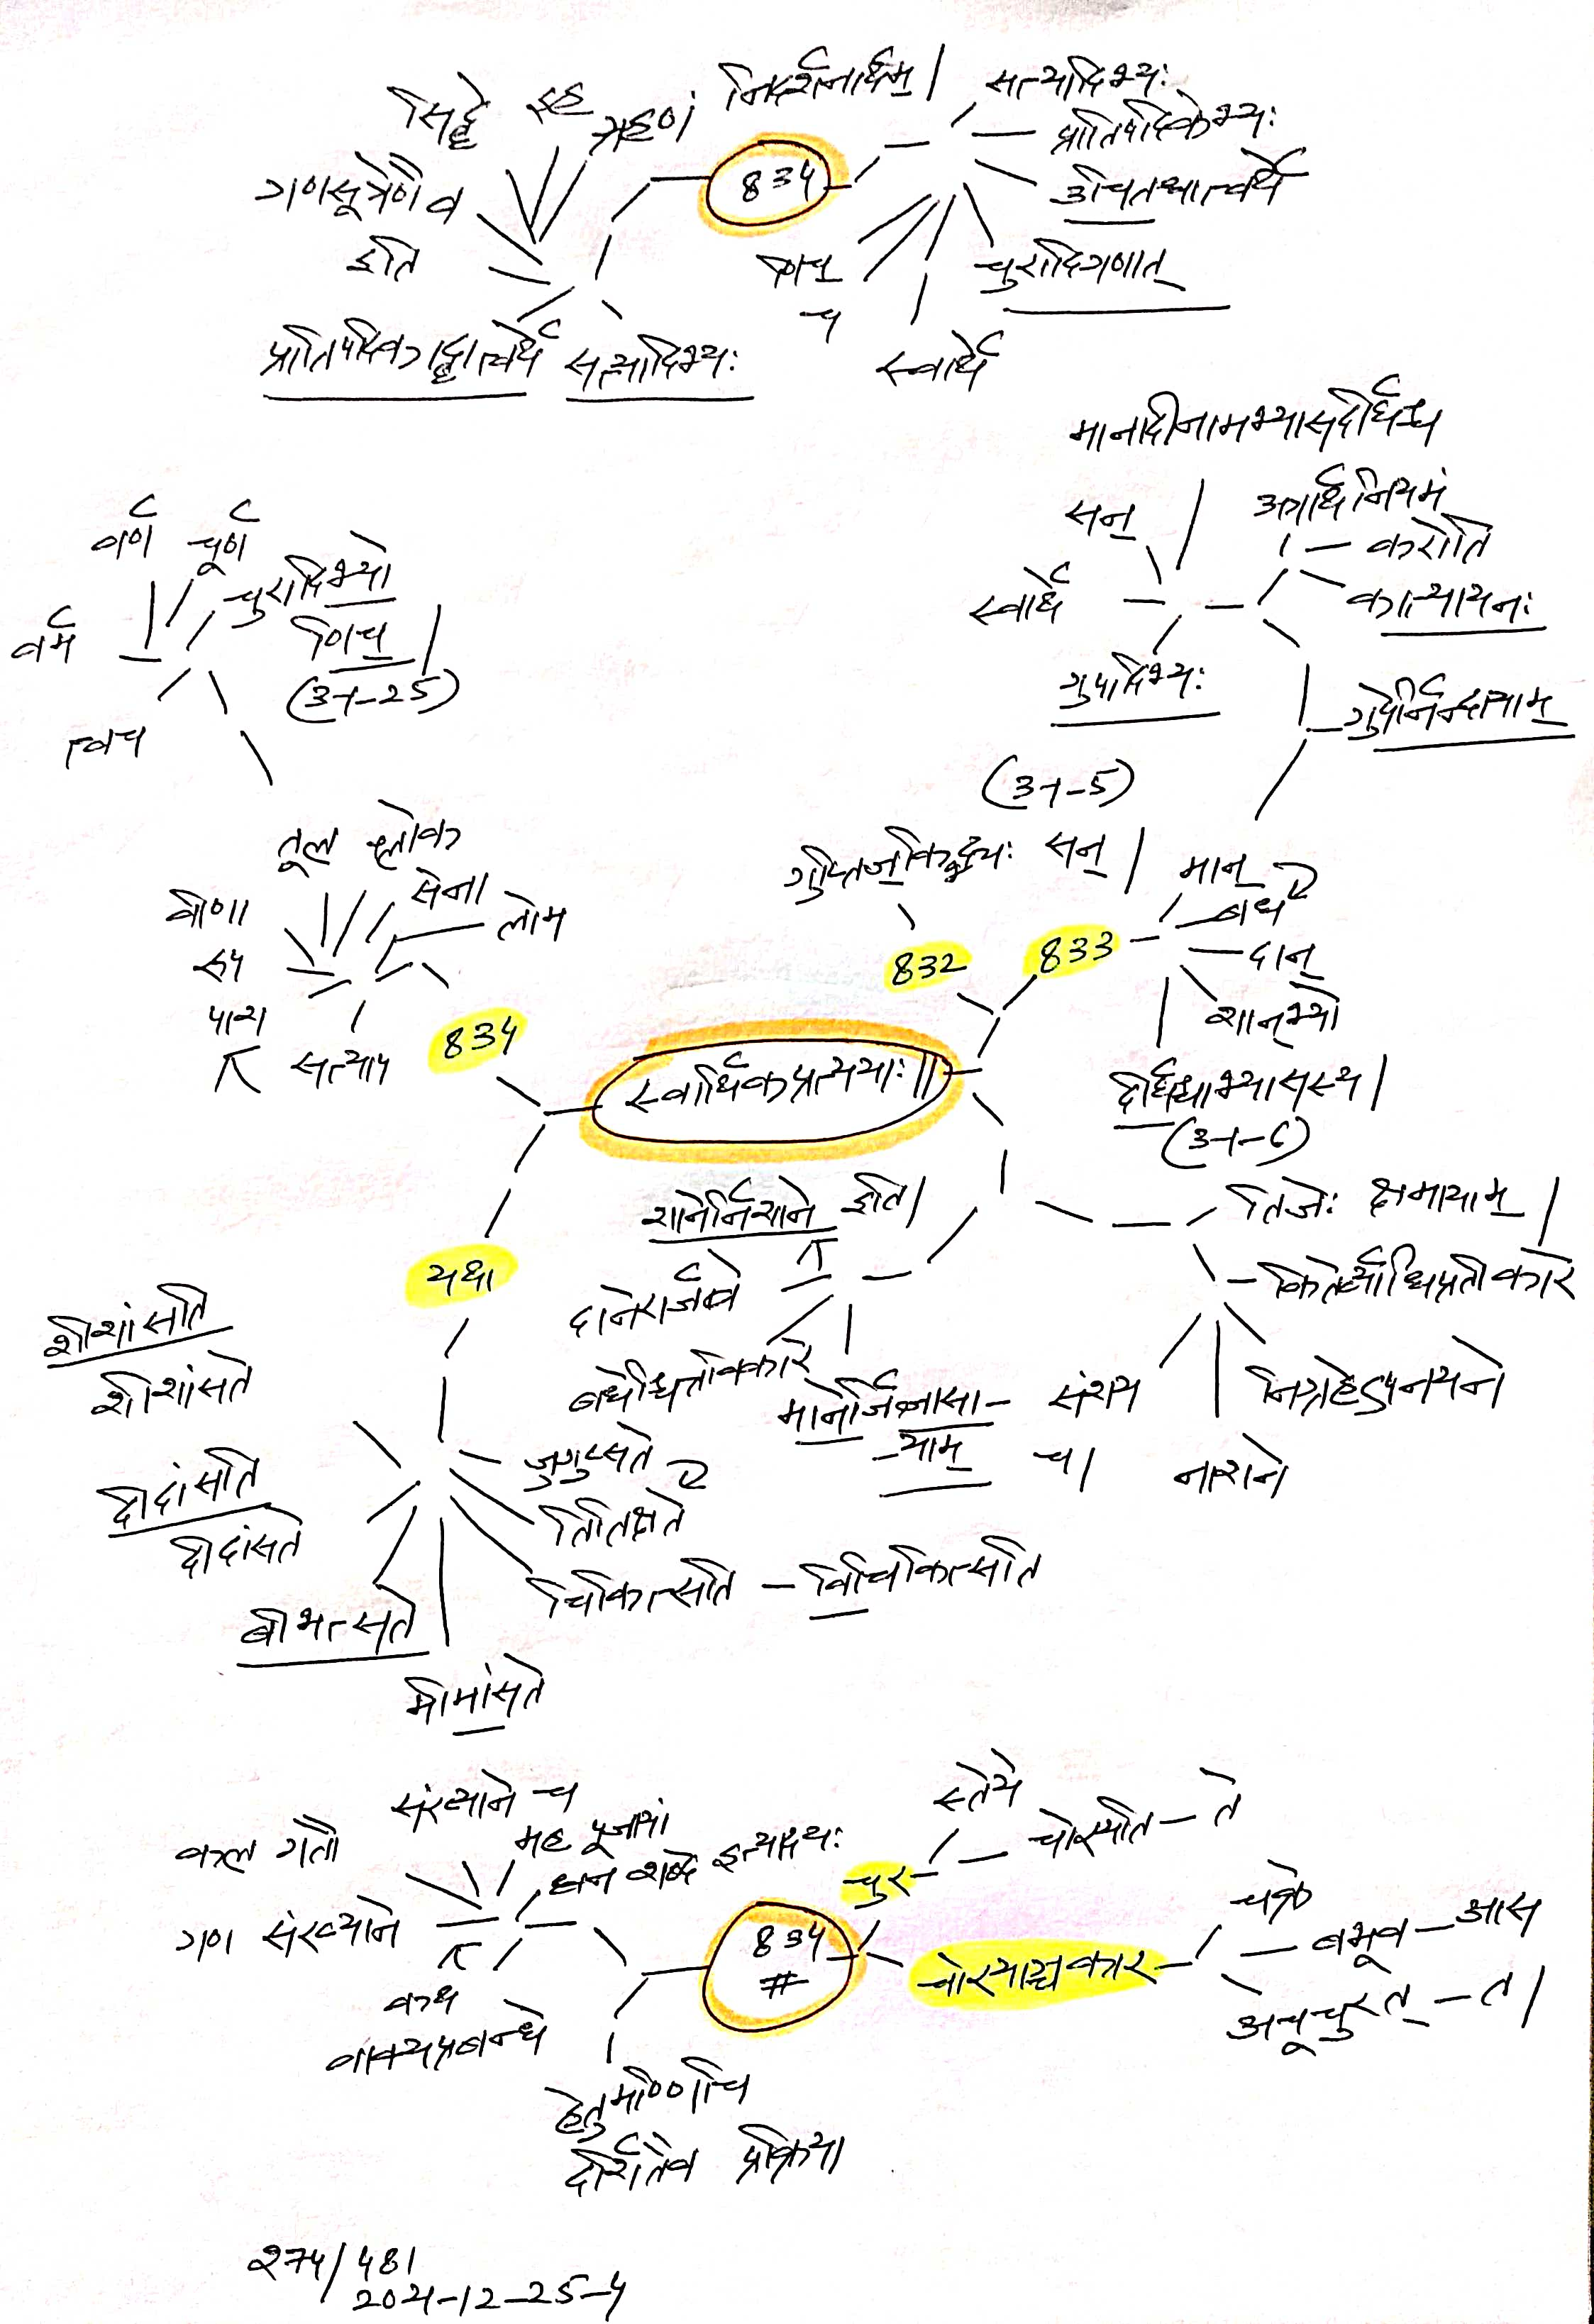 सिद्धे इह ग्रहणं निदर्शनार्थम् |
834
सत्यादिभ्यः
प्रातिपदिकेभ्यः
चुरादिगणात्
स्वार्थे
णिच्
च
गणसूत्रेणैव
इति
प्रातिपदिकाद्धात्वर्थे
सत्यादिभ्यः
मानादीनामभ्यासदीर्घश्च
सन् |
स्वार्थे
गुपादिभ्यः
करोति
कात्यायनः
गुपेर्निन्दायाम्
वर्ण चूर्ण
चुरादिभ्यो
णिच् |
(3-1-25)
वर्म
त्वच
तूल श्लोक
सेना
लोम
वीणा
रूप
पाश
सत्याप
834
(3-1-5)
गुप्तिज्किद्भ्यः सन् |
832
833
मान्
बध
दान्
शान्भ्यो
दीर्घश्चाभ्यासस्य |
(3-1-6)
स्वार्थिकप्रत्ययाः ||
तिजेः क्षमायाम् |
कितेर्व्याधिप्रतीकारे
निग्रहेऽपनयने
नाशने
संशये
च |
शानेर्निशाने इति |
दानेरार्जवे
बधेश्चित्तविकारे
मानेर्जिज्ञासा-
-याम्
यथा
शीशांसति
शीशांसते
दीदांसति
दीदांसते
बीभत्सते
मीमांसते
जुगुप्सते
तितिक्षते
चिकित्सति - विचिकित्सति
संख्याने च
कल गतौ
मह पूजायां
ध्वन शब्दे इत्यादयः
गण संख्याने
कथ
वाक्यप्रबन्धे
834
#
चुर
स्तेये
चोरयति - ते
चोरयाञ्चकार
चक्रे
बभूव - आस
अचूचुरत् - त |
हेतुमण्णिचि
दर्शितैव प्रक्रिया
274/481
2021-12-25-4